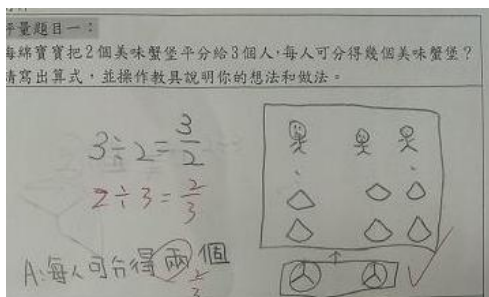 評量題目一：
海綿寶寶把2個美味蟹堡平分給3個人，每人可分得幾個美味蟹堡？
請寫出算式，並操作教具說明你的想法和做法。
3÷2=3/2
2÷3=2/3
A:每人可分得兩個
2/3